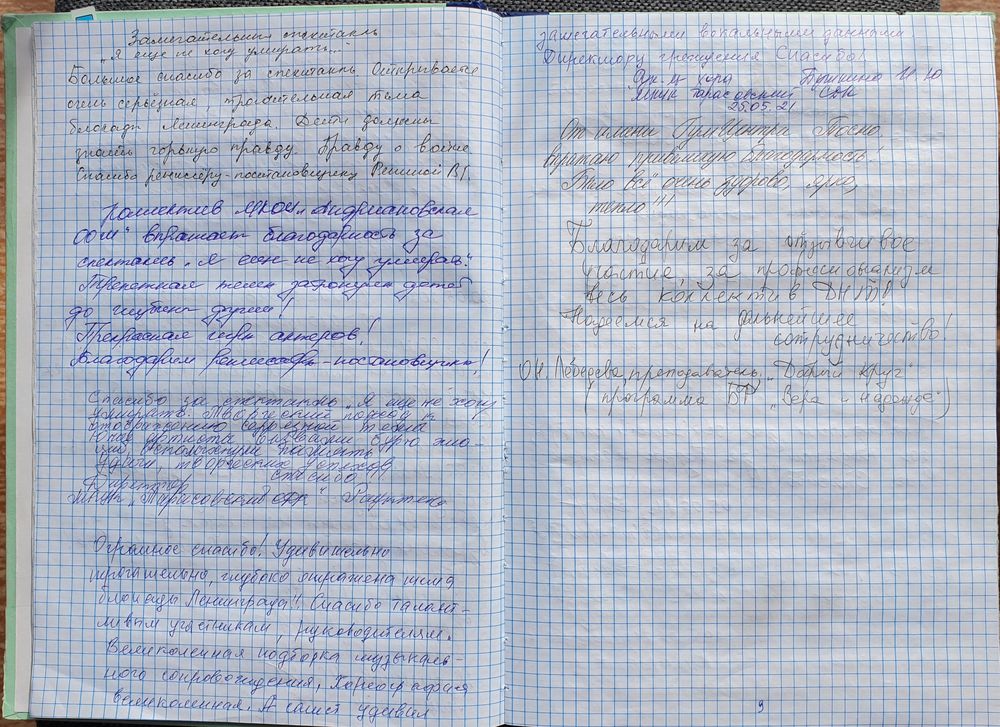 Замечательный спектакль
„Я еще не хочу умирать..."
Большое спасибо за спектакль. Открывается
очень серьёзная, трогательная тема
блокады Ленинграда. Дети должны
знать горькую правду. Правду о войне
Спасибо режиссёру-постановщику
Коллектив „Андриановский
дом" выражает благодарность за
спектакль „Я еще не хочу умирать"
Трепетная тема затронула детей
до глубины души!
Прекрасная игра актеров!
Благодарим режиссера-постановщика!
Спасибо за спектакль „Я еще не хочу
умирать". Творческий подход к
отображению серьезной темы
Юные артисты вызвали бурю эмо-
ций,
Удачи, творческих успехов
спасибо
Директор
„Тарасовский СДК"
Огромное спасибо! Удивительно
трогательно, глубоко отражена тема
блокады Ленинграда!! Спасибо талант-
ливым участникам, руководителям.
Великолепная подборка музыкаль-
ного сопровождения, Хореография
великолепная. А солист удивил
замечательными вокальными данными
Директору учреждения Спасибо!
хора И. Ю
МКУК Тарасовский СДК
25.05.21
От имени ГумЦентра Тосно
выражаю
Было всё очень здорово, ярко,
тепло!!!
Благодарим за отзывчивое
участие, за профессионализм
весь коллектив ДНТ!
Надеемся на дальнейшее
сотрудничество!
О.Н. Лебедева, преподаватель „Добрый круг"
(программа БФ „Вера и Надежда")
9